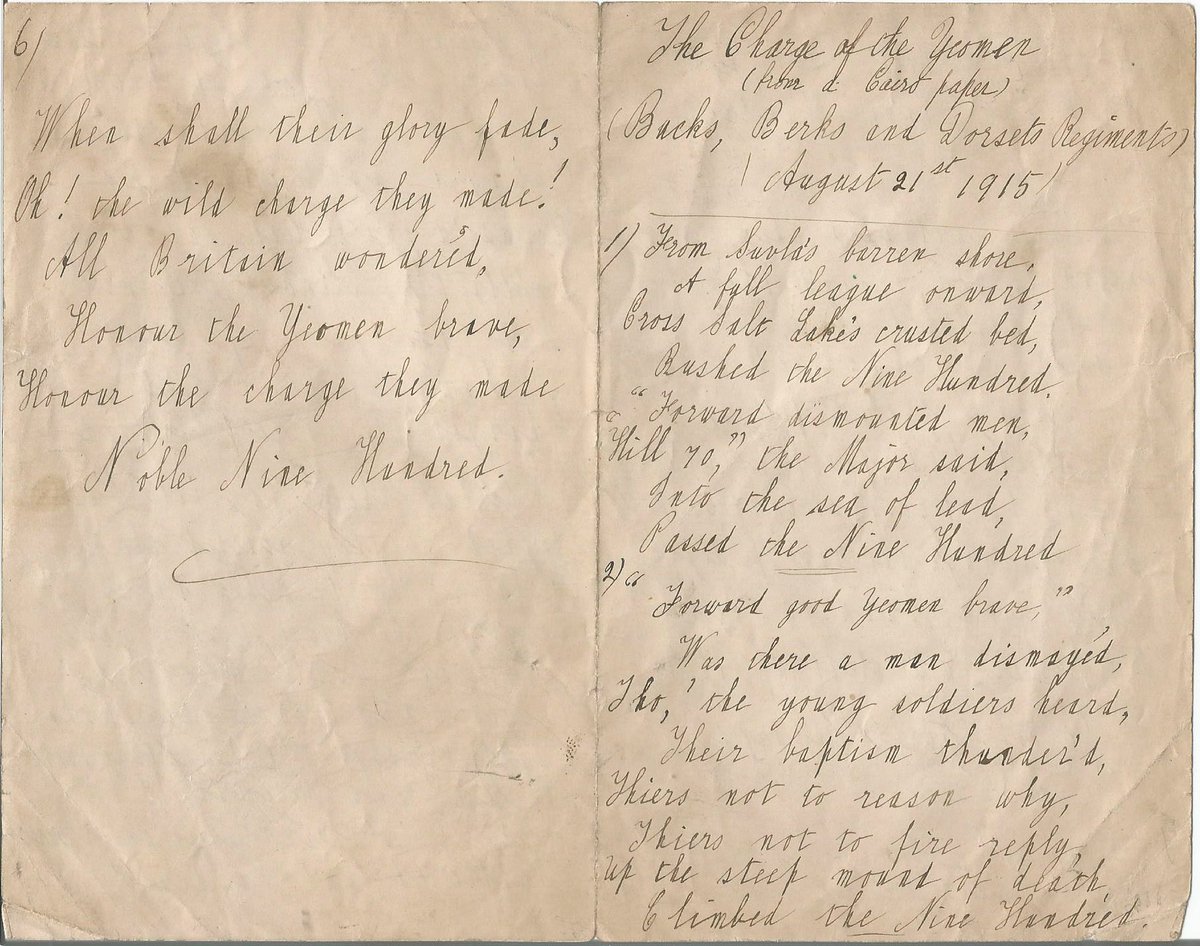 6)
When shall their glory fade,
Oh! the wild charge they made!
All Britain wonder'd,
Honour the Yeomen brave,
Honour the charge they made
Noble Nine Hundred.
The Charge of the Yeomen
(from a Cairo paper)
(Bucks, Berks and Dorsets Regiments)
(August 21st 1915)
1) From Suvla's barren shore,
A full league onward,
Cross Salt Lake's crusted bed,
Rushed the Nine Hundred.
"Forward dismounted men,
"Hill 70," the Major said,
Into the sea of lead,
Passed the Nine Hundred
2) "Forward good Yeomen brave,"
Was there a man dismay'd,
Tho,' the young soldiers heard,
Their baptism thunder'd,
Thiers not to reason why,
Thiers not to fire reply,
Up the steep mound of death,
Climbed the Nine Hundred.